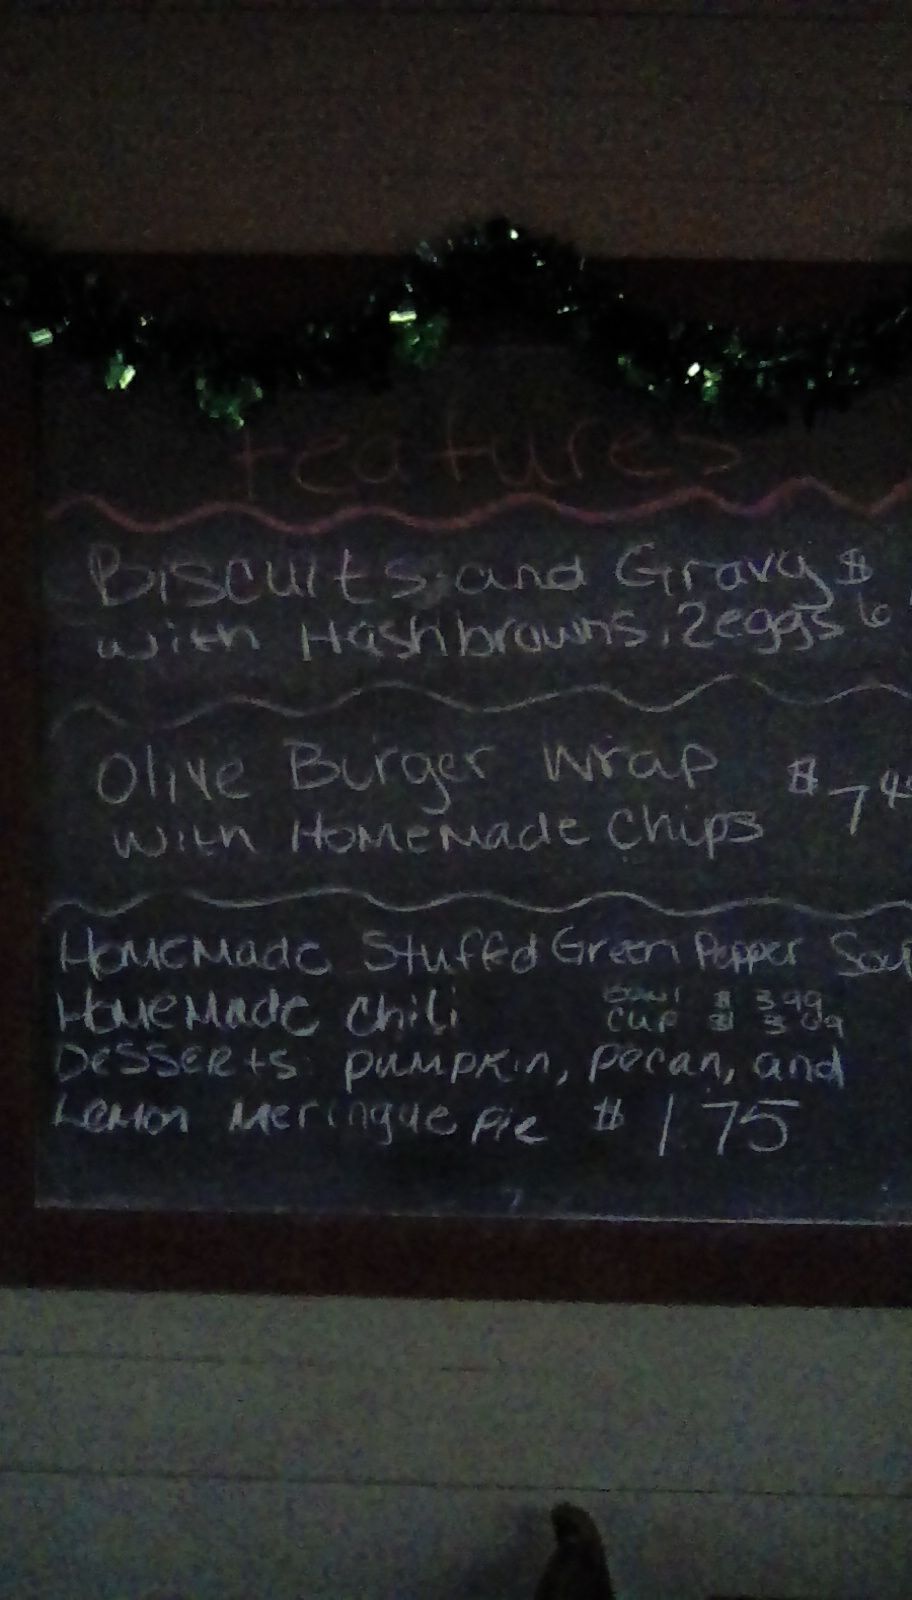 Features
Biscuits and Gravy $
with Hashbrowns, 2eggs 6
Olive Burger Wrap
$7
with HomeMade Chips
HomeMade Stuffed Green Pepper
HomeMade Chili
Bowl $ 3.99
Cup $ 3
Desserts: pumpkin, pecan, and
Lemon Meringue pie $1.75